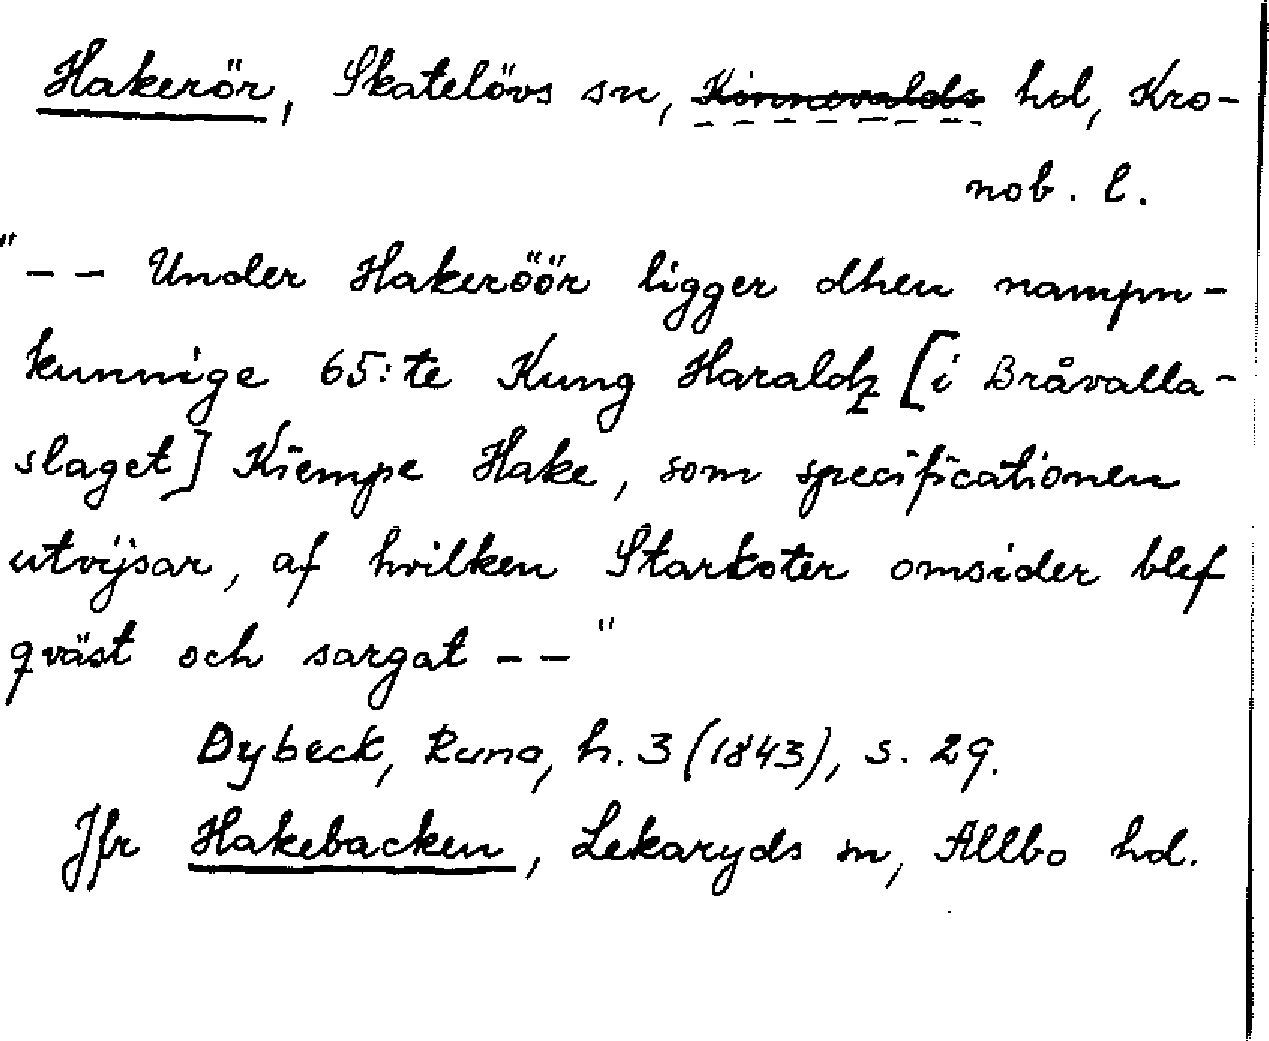 Hakerör, Skatelövs sn, Kinnevalds hd, Kro-
nob. l.
"-- Under Hakeröör ligger dhen nampn-
kunnige 65:te Kung Haraldz [i Bråvalla-
slaget] Kiempe Hake, som specificationen
utvijsar, af hvilken Starkoter omsider blef
qväst och sargat --"
Dybeck, Runa, h. 3 (1843), s. 29.
Jfr Hakebacken, Lekaryds sn, Allbo hd.